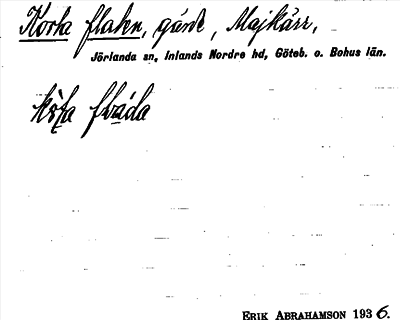 Korta flaken, gärde, Majkärr,
Jörlanda sn, Inlands Nordre hd, Göteb. o. Bohus län.
ERIK ABRAHAMSON 1936.